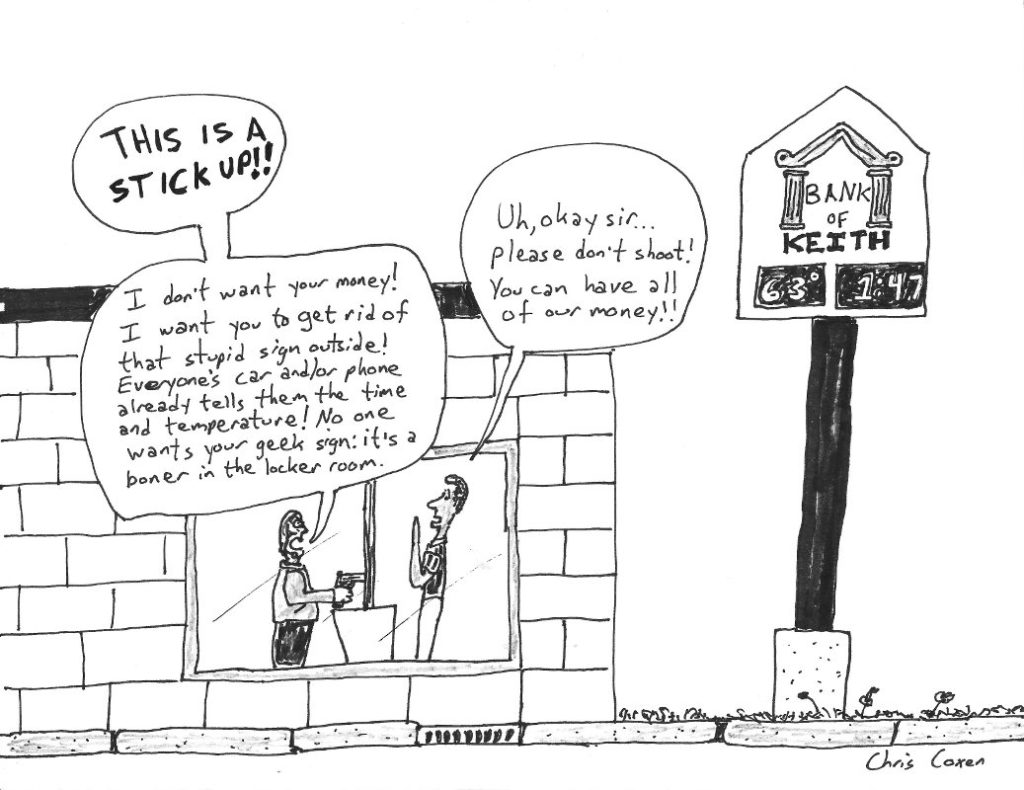 THIS IS A
STICK UP!!
Uh, okay sir...
please don't shoot!
You can have all
of our money!!
I don't want your money!
I want you to get rid of
that stupid sign outside!
Everyone's car and/or phone
already tells them the time
and temperature! No one
wants your geek sign: it's a
boner in the locker room.
BANK
OF
KEITH
63° 1:47
Chris Coxen